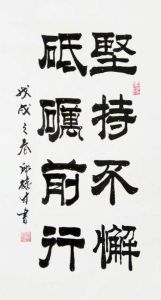 堅持不懈
砥礪前行
戊戌之春邱樹才書